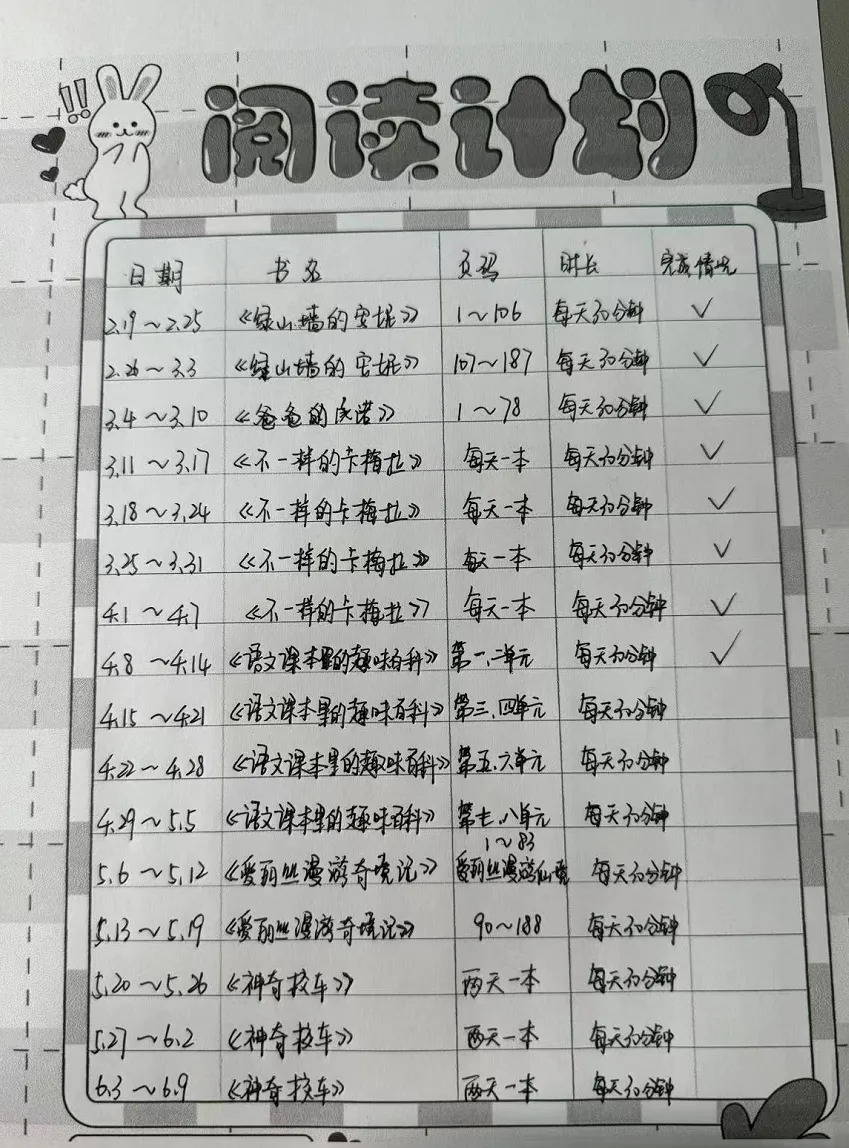 !!
阅读计划
日期 书名 页码 时长 完成情况
2.19～2.25 《绿山墙的安妮》 1～106 每天30分钟 ✓
2.26～3.3 《绿山墙的安妮》 107～187 每天30分钟 ✓
3.4～3.10 《爸爸的承诺》 1～78 每天30分钟 ✓
3.11～3.17 《不一样的卡梅拉》 每天一本 每天30分钟 ✓
3.18～3.24 《不一样的卡梅拉》 每天一本 每天30分钟 ✓
3.25～3.31 《不一样的卡梅拉》 每天一本 每天30分钟 ✓
4.1～4.7 《不一样的卡梅拉》 每天一本 每天30分钟 ✓
4.8～4.14 《语文课本里的趣味百科》 第一、二单元 每天30分钟 ✓
4.15～4.21 《语文课本里的趣味百科》 第三、四单元 每天30分钟
4.22～4.28 《语文课本里的趣味百科》 第五、六单元 每天30分钟
4.29～5.5 《语文课本里的趣味百科》 第七、八单元 每天30分钟
1～83
5.6～5.12 《爱丽丝漫游奇境记》 爱丽丝漫游仙境 每天30分钟
5.13～5.19 《爱丽丝漫游奇境记》 90～188 每天30分钟
5.20～5.26 《神奇校车》 两天一本 每天30分钟
5.27～6.2 《神奇校车》 两天一本 每天30分钟
6.3～6.9 《神奇校车》 两天一本 每天30分钟